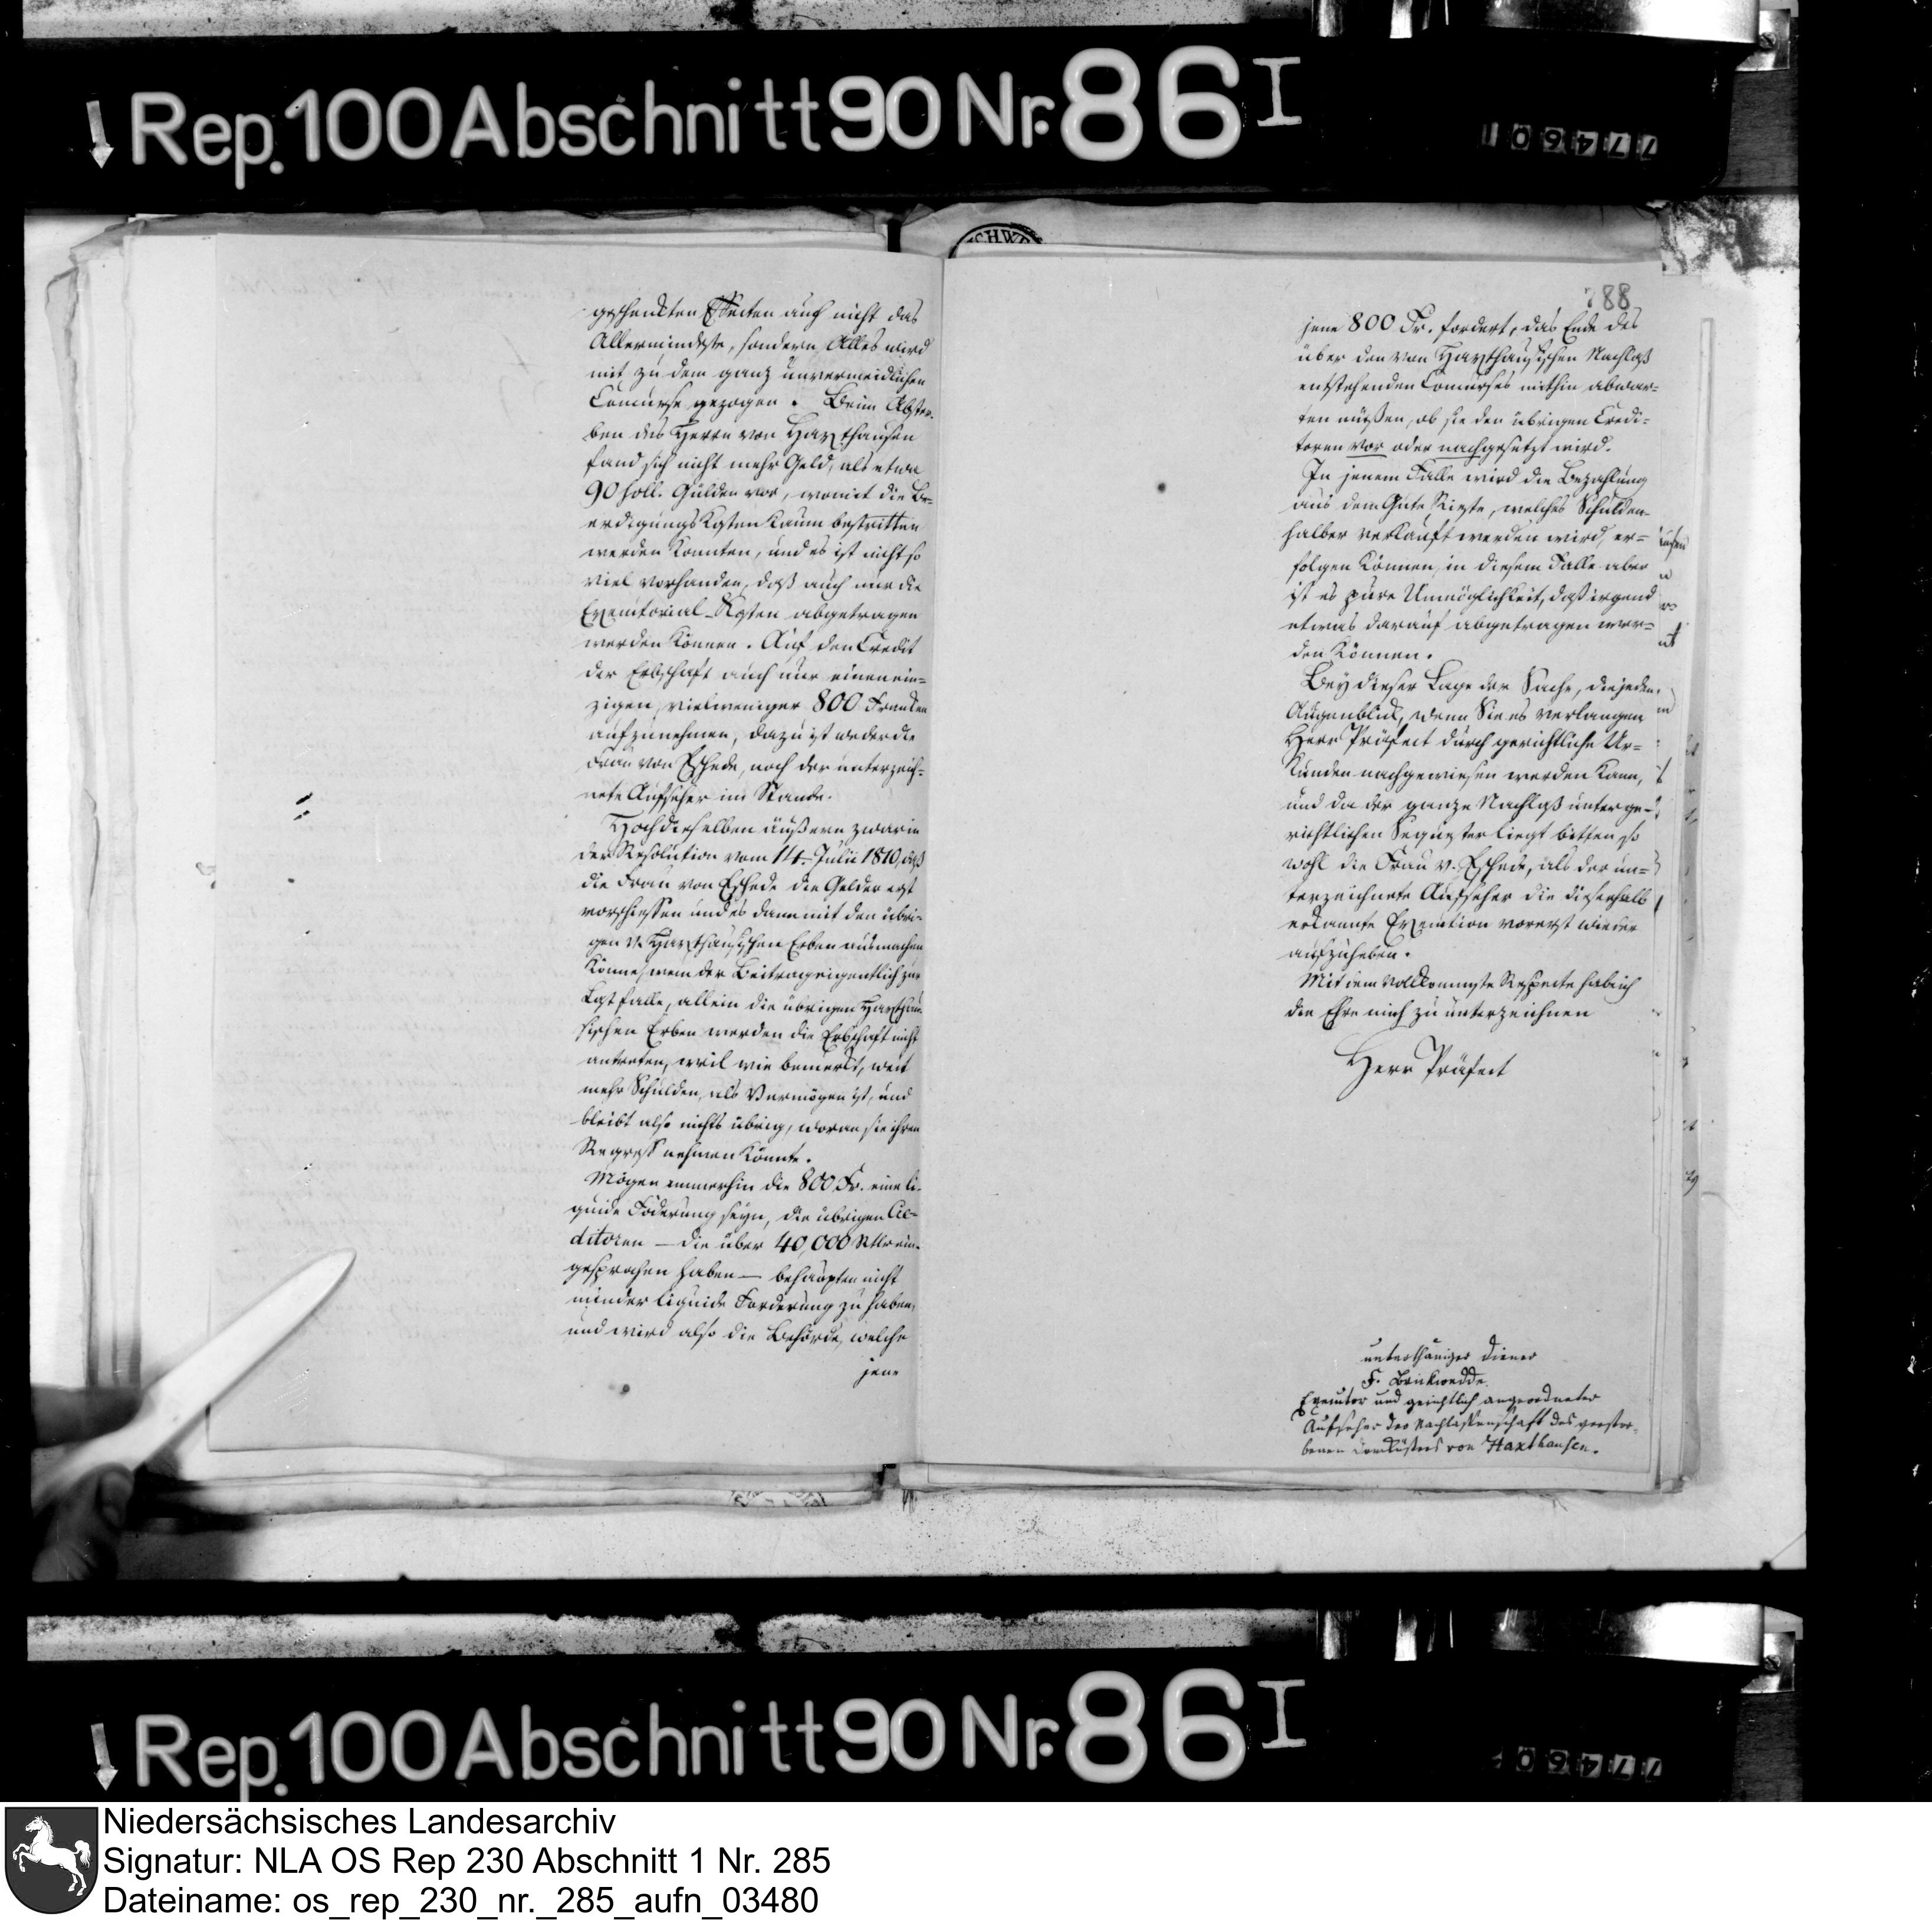 Rep. 100 Abschnitt 90 Nr. 86 I
geschenkten Effecten auch nicht das
Allermindeste, sondern Alles wird
mit zu dem ganz unvermeidlichen
Concurse gezogen. Beim Abster-
ben des Herrn von Haxthausen
fand sich nicht mehr Geld, als etwa
90 holl. Gulden vor, womit die Be-
erdigungs Kosten kaum bestritten
werden konnten, und es ist nicht so
viel vorhanden, daß auch nur die
Executorial-Kosten abgetragen
werden können. Auf den Credit
der Erbschaft auch nur einen ein-
zigen, vielweniger 800 Franken
aufzunehmen, dazu ist weder die
Frau von Eschede, noch der unterzeich-
nete Aufseher im Stande.
Hochdieselben äußern zwar in
der Resolution vom 14. Julii 1810, daß
die Frau von Eschede die Gelder erst
vorschiessen und es dann mit den übri-
gen v. Haxthausischen Erben ausmachen
könne, wem der Beitrag eigentlich zur
Last falle, allein die übrigen Haxthau-
sischen Erben werden die Erbschaft nicht
antreten, weil wie bemerkt, weit
mehr Schulden, als Vermögen ist, und
bleibt also nichts übrig, woran sie ihren
Regress nehmen könnte.
Mögen immerhin die 800 Fr. eine li-
quide Foderung seyn, die übrigen Cre-
ditoren — die über 40,000 Rtlr ein-
gesprochen haben — behaupten nicht
minder liquide Forderung zu haben,
und wird also die Behörde, welche
jene
788
jene 800 Fr. fordert, das Ende des
über den von Haxthausischen Nachlaß
entstehenden Concurses mithin abwar-
ten müßen, ob sie den übrigen Credi-
toren vor oder nachgesetzt wird.
In jenem Falle wird die Bezahlung
aus dem Gute Rieste, welches Schulden-
halber verkauft werden wird, er-
folgen können, in diesem Falle aber
ist es pure Unmöglichkeit, daß irgend
etwas darauf abgetragen wer-
den können.
Bey dieser Lage der Sache, die jeden
Augenblick, wenn Sie es verlangen
Herr Präfect durch gerichtliche Ur-
kunden nachgewiesen werden kann,
und da der ganze Nachlaß unter ge-
richtlichen Sequester liegt bitten so
wohl die Frau v. Eschede, als der un-
terzeichnete Aufseher die dieserhalb
erkannte Execution vorerst wieder
aufzuheben.
Mit dem vollkommste Respecte habe ich
die Ehre mich zu unterzeichnen
Herr Präfect
unterthäniger Diener
F. Brickwedde
Executor und gerichtlich angeordneter
Aufseher der Nachlassenschaft des verstor-
benen Domküsters von Haxthausen.
Rep. 100 Abschnitt 90 Nr. 86 I
Niedersächsisches Landesarchiv
Signatur: NLA OS Rep 230 Abschnitt 1 Nr. 285
Dateiname: os_rep_230_nr._285_aufn_03480